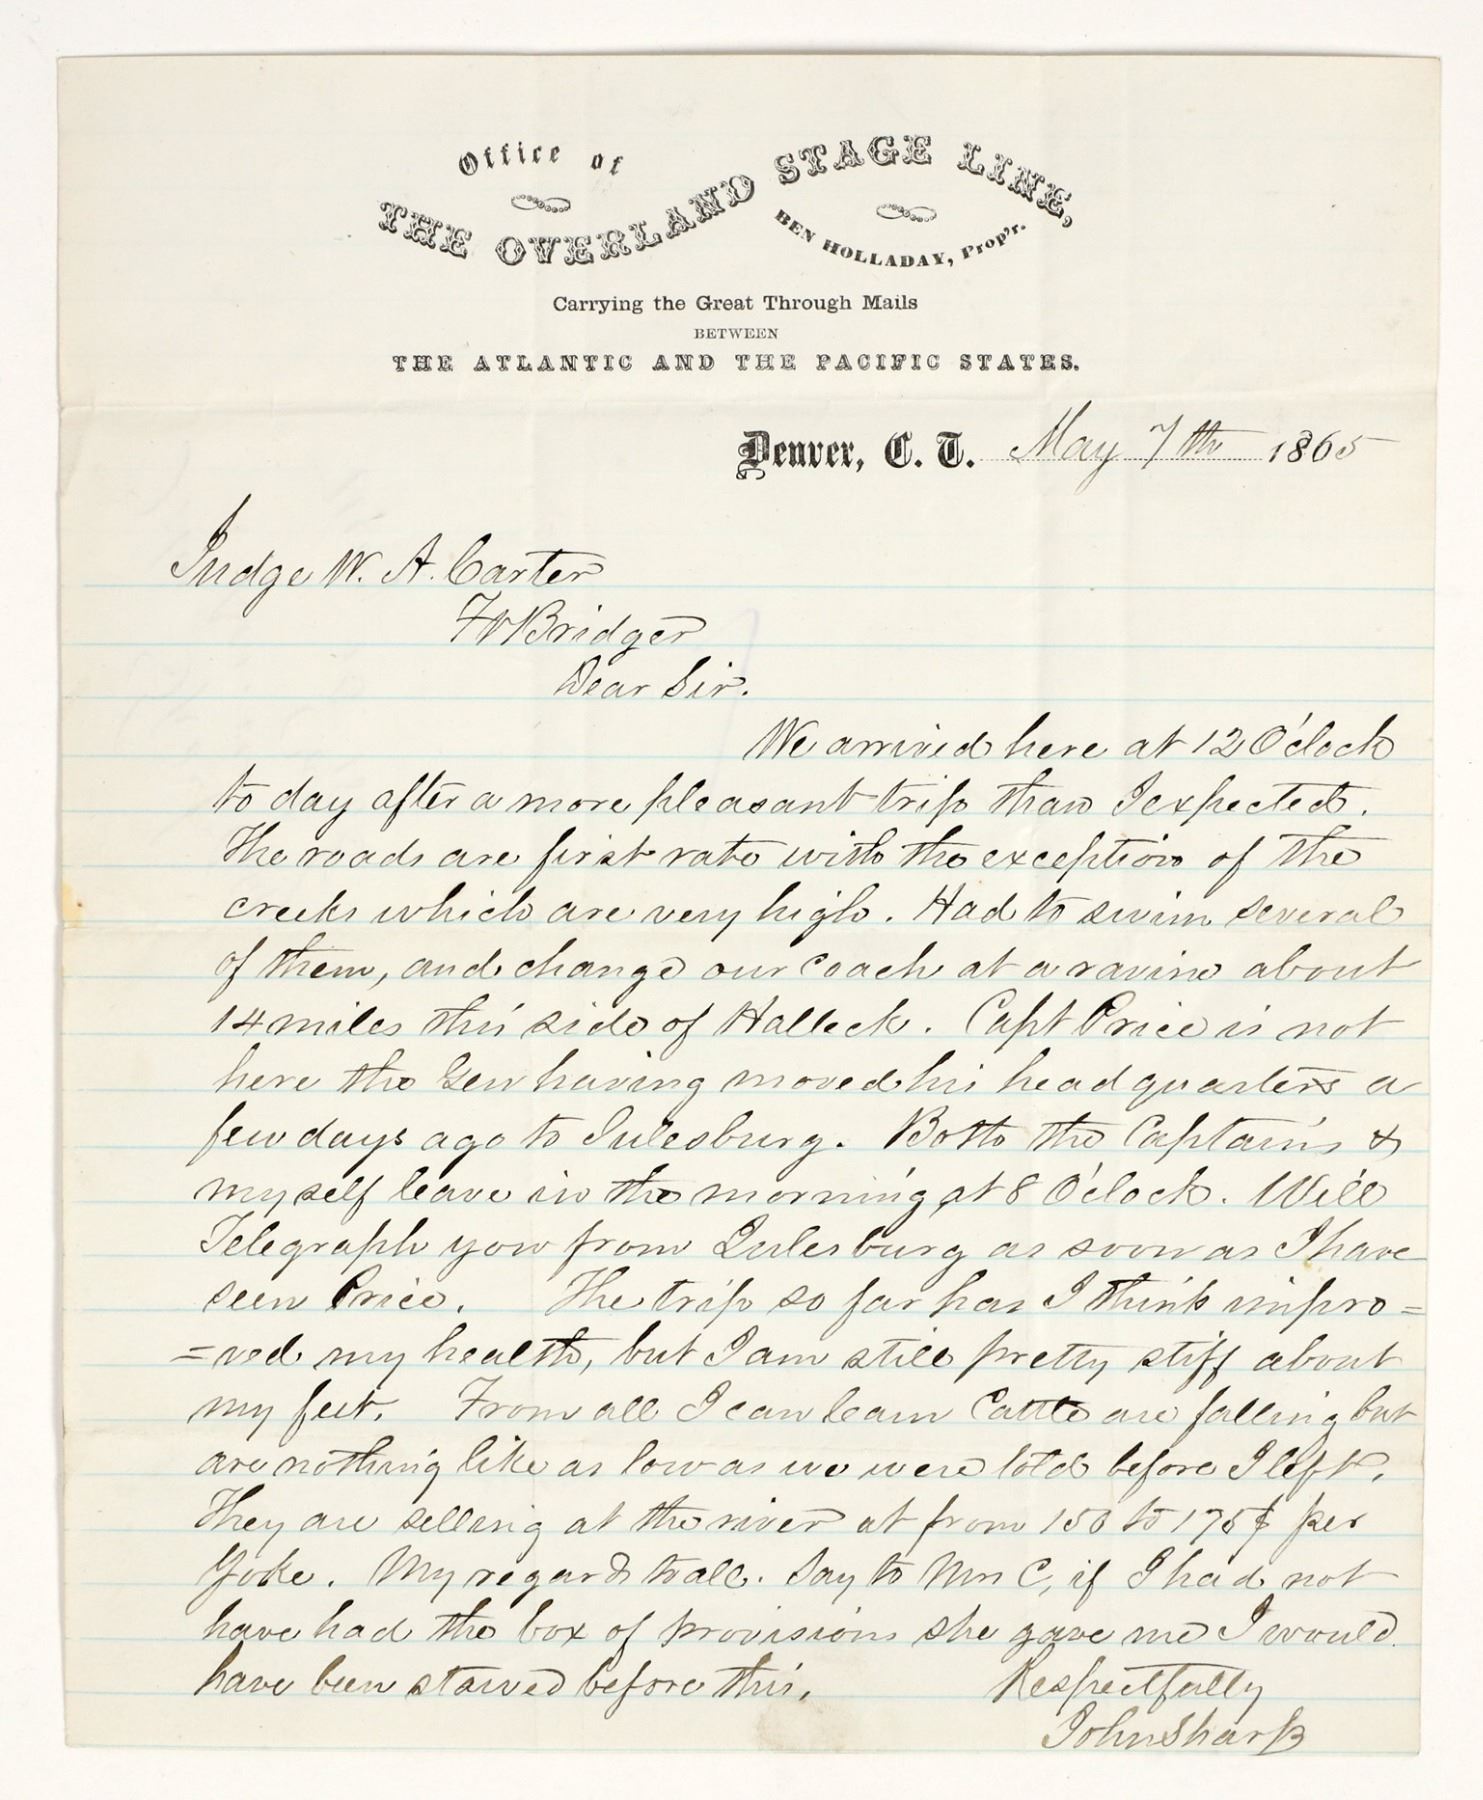 Office of
THE OVERLAND STAGE LINE,
BEN HOLLADAY, Prop'r.
Carrying the Great Through Mails
BETWEEN
THE ATLANTIC AND THE PACIFIC STATES.
Denver, C. T. May 7th 1865
Judge W. A. Carter
Ft Bridger
Dear Sir.
We arrived here at 12 O'clock
to day after a more pleasant trip than I expected.
The roads are first rate with the exception of the
creeks which are very high. Had to swim several
of them, and change our coach at a ravine about
14 miles this side of Halleck. Capt Price is not
here the Gen having moved his head quarters a
few days ago to Julesburg. Both the Captains &
myself leave in the morning at 8 O'clock. Will
Telegraph you from Julesburg as soon as I have
seen Price. The trip so far has I think impro=
=ved my health, but I am still pretty stiff about
my feet. From all I can learn Cattle are falling but
are nothing like as low as we were told before I left.
They are selling at the river at from 150 to 175$ per
Yoke. My regards to all. Say to Mrs C, if I had not
have had the box of provisions she gave me I would
have been starved before this.
Respectfully
John Sharp